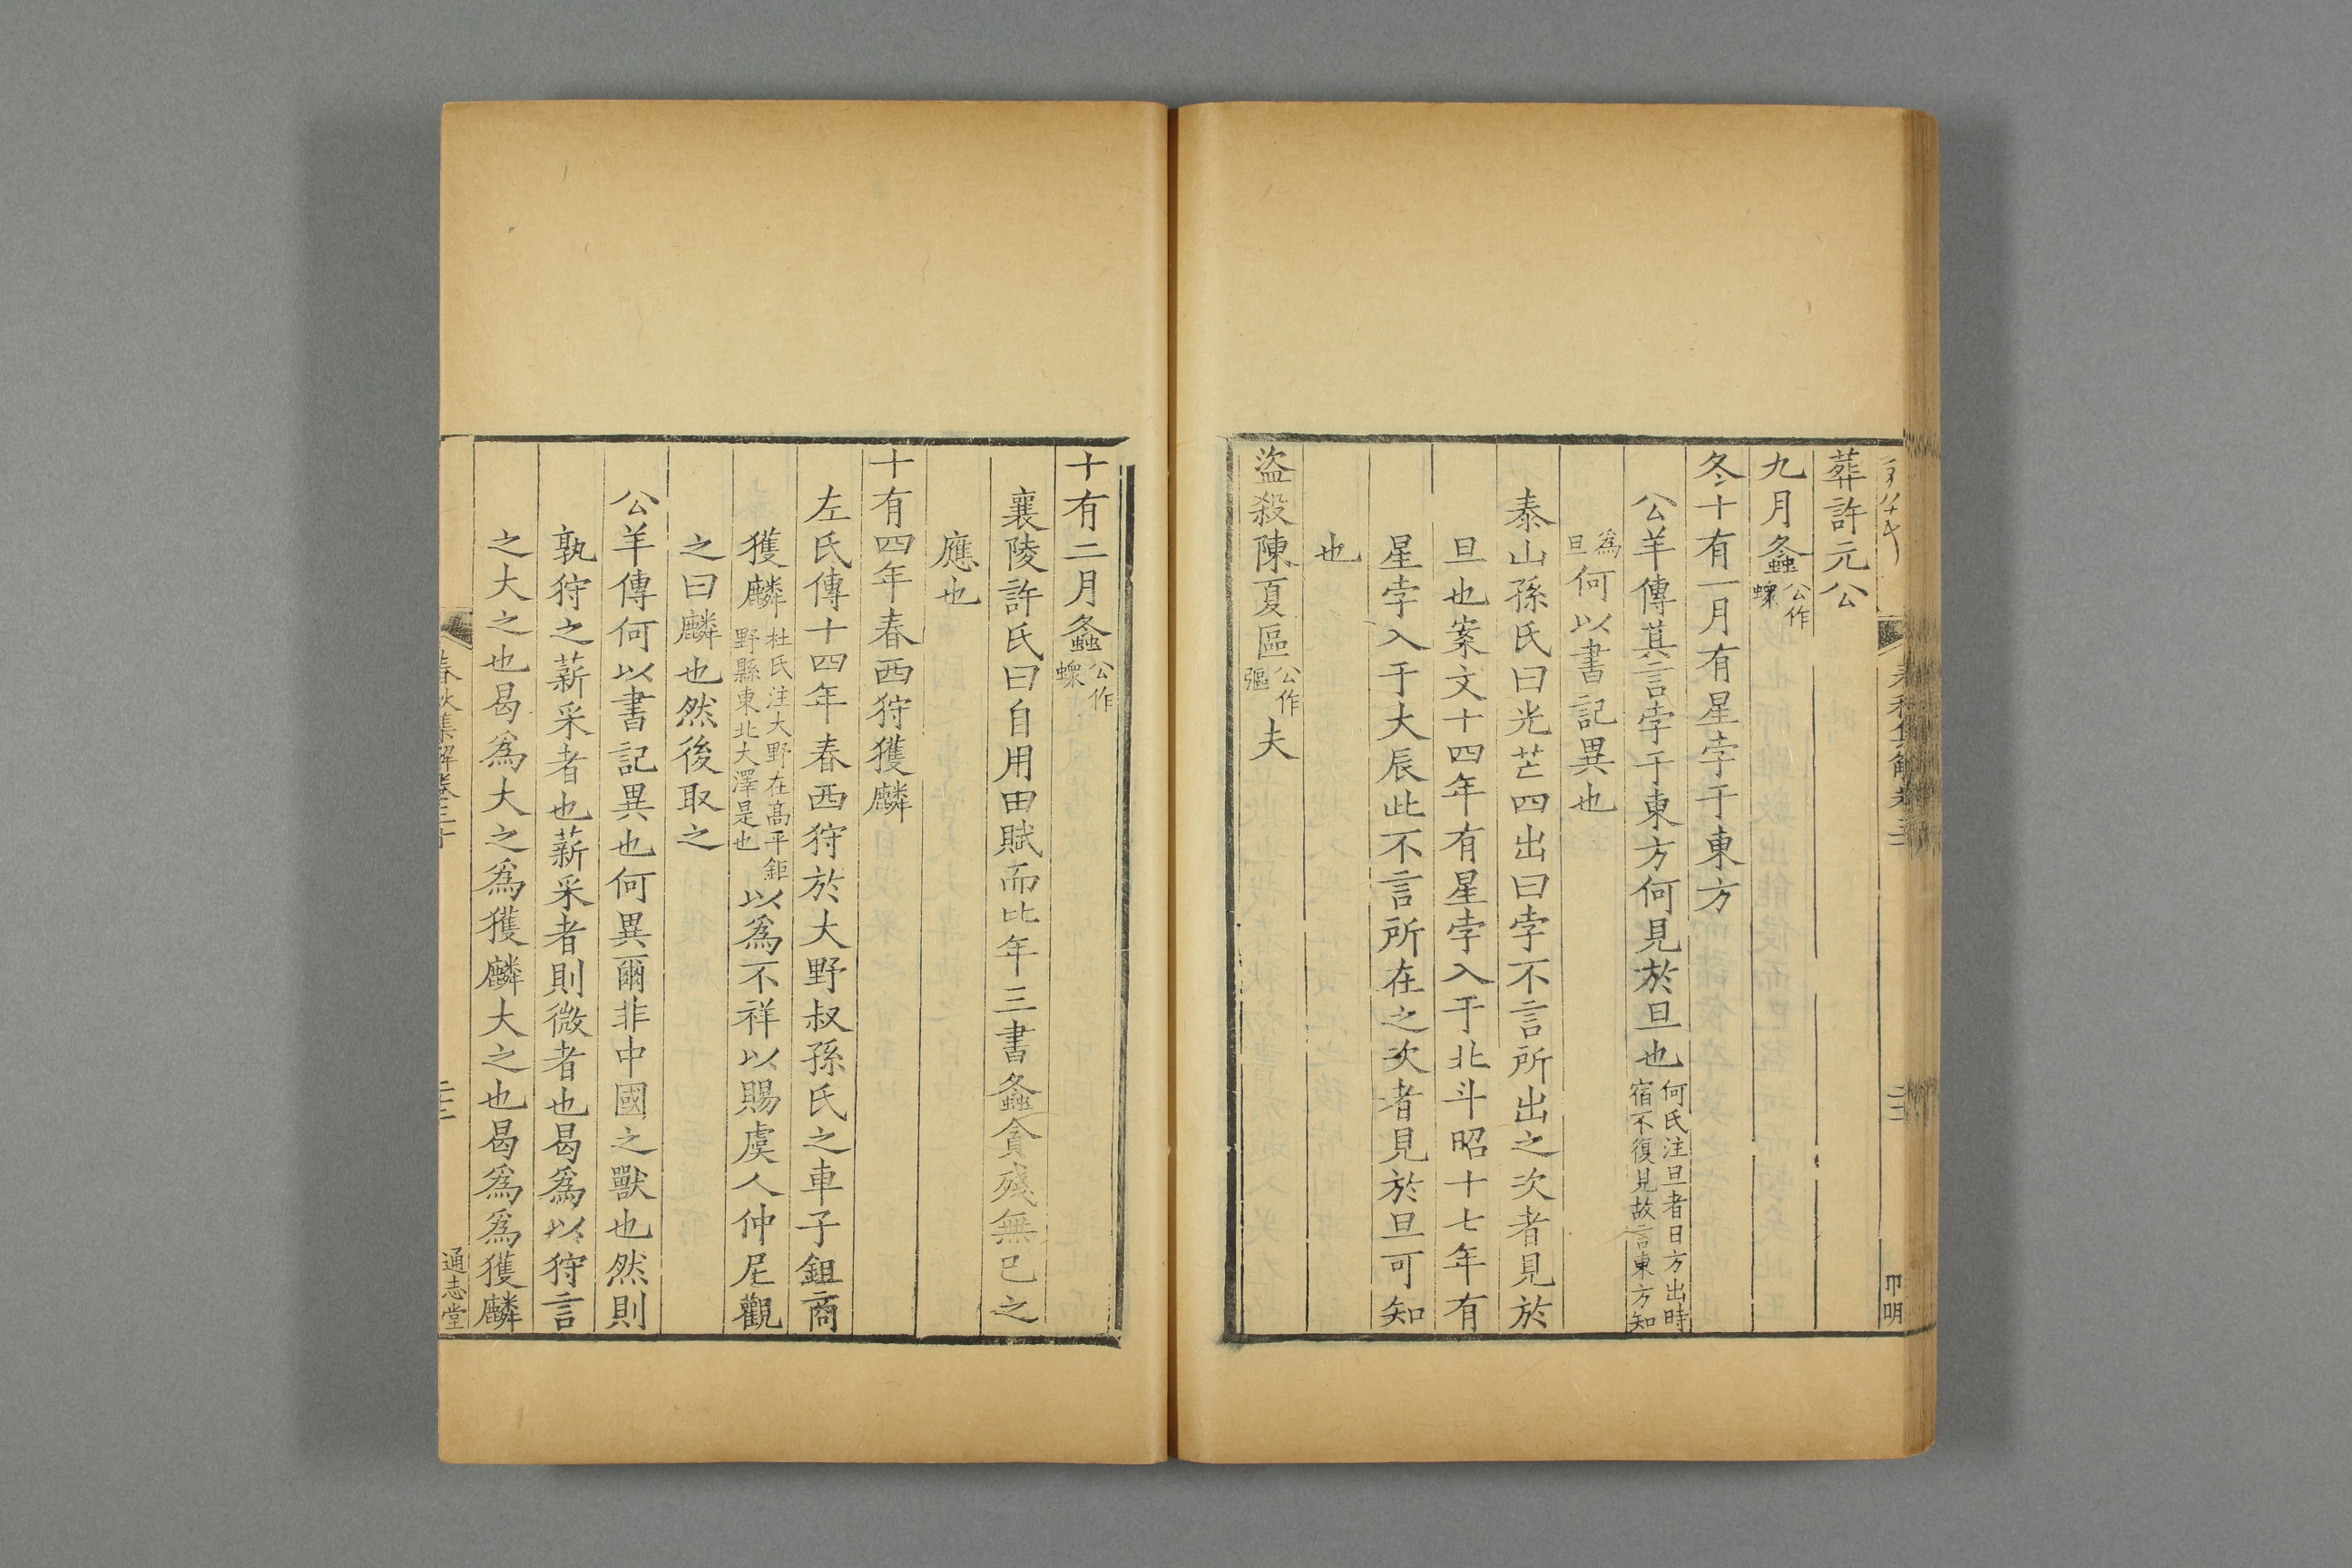 葬許元公
九月螽公作䗥
冬十有一月有星孛于東方
公羊傳其言孛于東方何見於旦也何氏注旦者日方出時宿不復見故言東方知
爲旦何以書記異也
泰山孫氏曰光芒四出曰孛不言所出之次者見於
旦也案文十四年有星孛入于北斗昭十七年有
星孛入于大辰此不言所在之次者見於旦可知
也
盜殺陳夏區公作彄夫
十有二月螽公作䗥
襄陵許氏曰自用田賦而比年三書螽貪殘無已之
應也
十有四年春西狩獲麟
左氏傳十四年春西狩於大野叔孫氏之車子鉏商
獲麟杜氏注大野在高平鉅野縣東北大澤是也以爲不祥以賜虞人仲尼觀
之曰麟也然後取之
公羊傳何以書記異也何異爾非中國之獸也然則
孰狩之薪采者也薪采者則微者也曷爲以狩言
之大之也曷爲大之爲獲麟大之也曷爲爲獲麟
春秋集解卷三十
通志堂